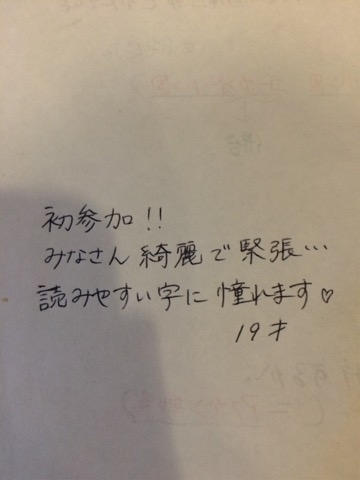 初参加!!
みなさん綺麗で緊張…
読みやすい字に憧れます♡
19才